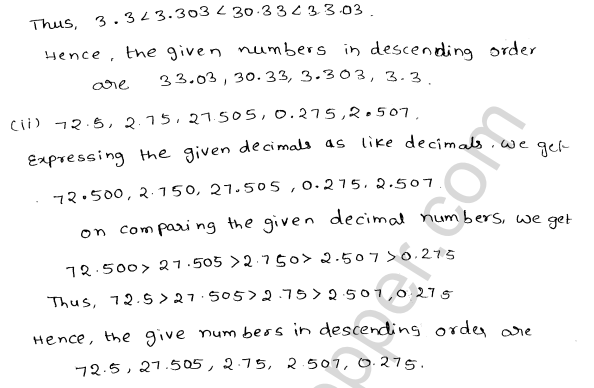 Thus, 3.3 < 3.303 < 30.33 < 33.03.
Hence, the given numbers in descending order
are 33.03, 30.33, 3.303, 3.3.
(ii) 72.5, 2.75, 27.505, 0.275, 2.507.
Expressing the given decimals as like decimals. we get
72.500, 2.750, 27.505, 0.275, 2.507.
on comparing the given decimal numbers, we get
72.500 > 27.505 > 2.750 > 2.507 > 0.275
Thus, 72.5 > 27.505 > 2.75 > 2.507, 0.275
Hence, the give numbers in descending order are
72.5, 27.505, 2.75, 2.507, 0.275.
opper.com